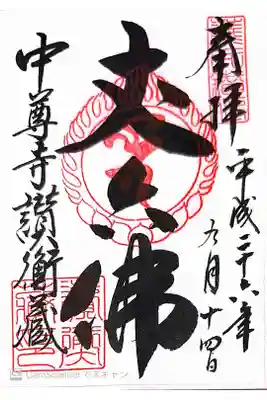 奉拝
平成二十六年
九月十四日
丈六佛
中尊寺讃衡蔵
CamScanner でスキャン